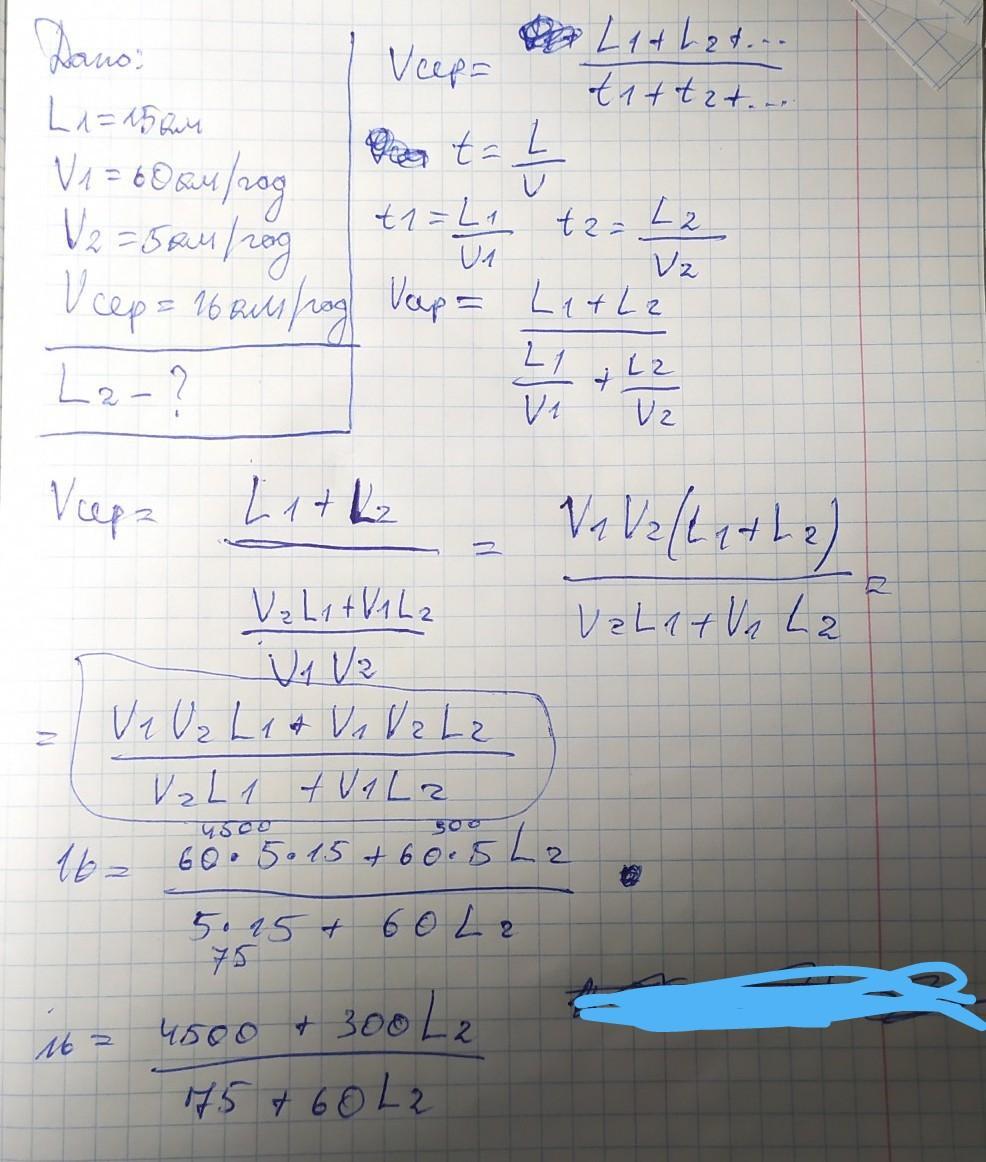 Дано:
L1=15км
V1=60км/год
V2=5км/год
Vсер=16км/год
L2-?
Vсер= L1+L2+... / t1+t2+...
t= L / V
t1= L1 / V1 t2= L2 / V2
Vсер= L1+L2 / L1 / V1 + L2 / V2
Vсер= L1+L2 / V2L1+V1L2 / V1V2 = V1V2(L1+L2) / V2L1+V1L2 =
= V1V2L1+V1V2L2 / V2L1+V1L2
4500 300
16= 60·5·15+60·5L2 / 5·15+60L2
75
16= 4500+300L2 / 75+60L2